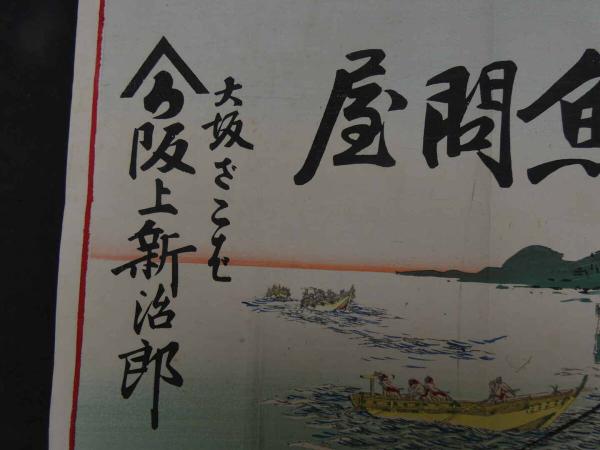 魚問屋
大坂ざこば
阪上新治郎